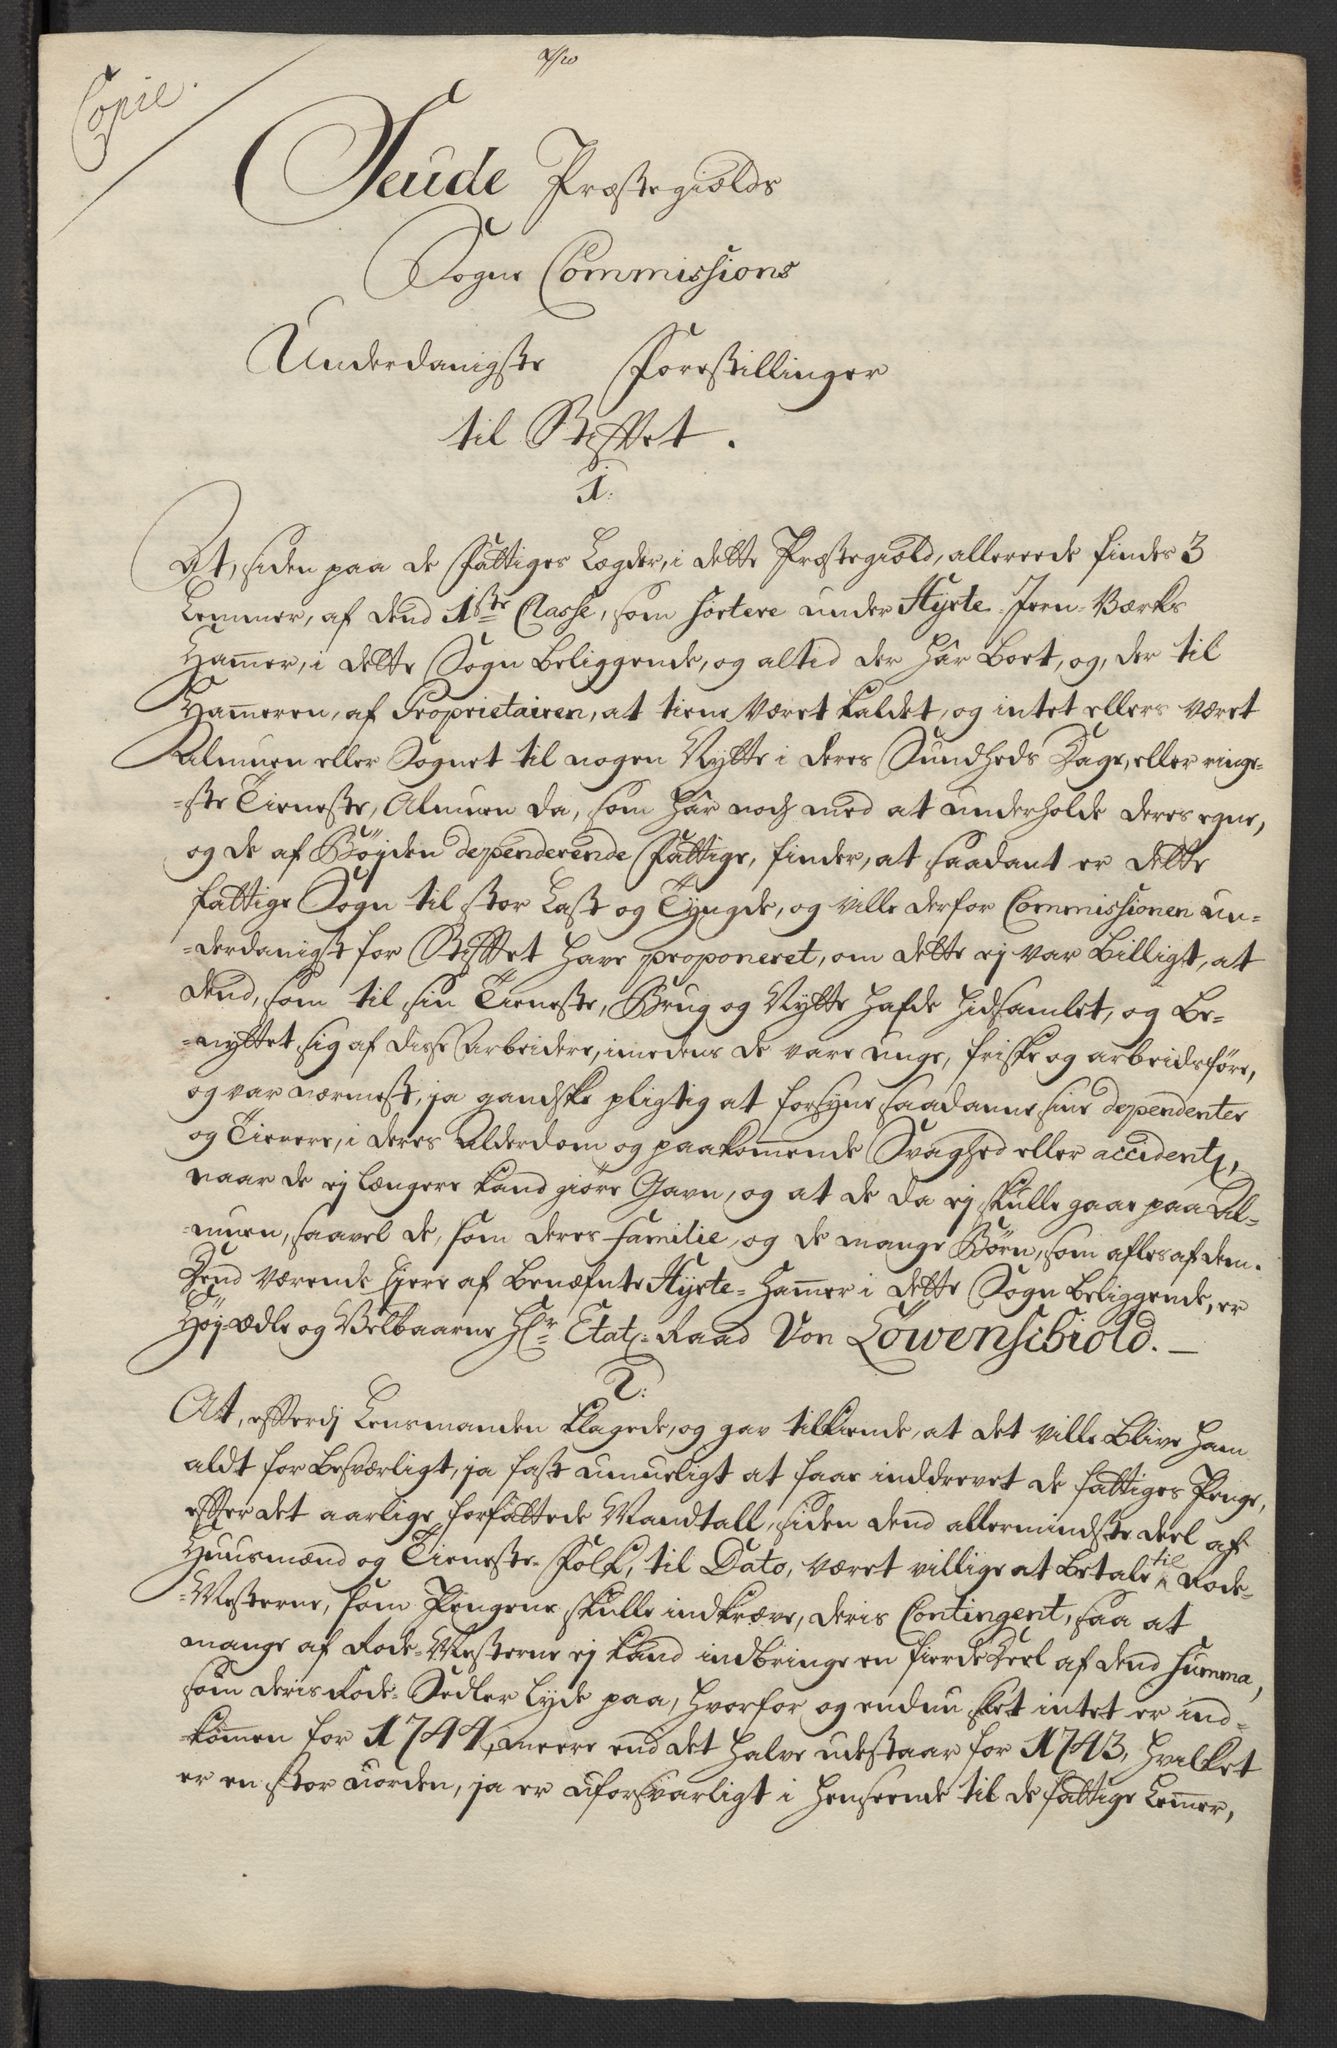 Copie.
Seude Præstegiælds
Sogne Commissions
Underdanigste Forestillinger
til Stifftet.
1.
At, siden paa de Fattiges Lægder, i dette Præstegiæld, allereede findes 3
Lemmer, af dend 1ste Classe, som sortere under Hyrte-Jern-Værks
Ham̄er, i dette Sogn beliggende, og altid der har boet, og, der til
Ham̄eren, af Proprietairen, at tiene været kaldet, og intet ellers været
Almuen eller Sognet til nogen Nytte i deres Sundheds Dage, eller ringe-
-ste Tieneste, Almuen da, som har nock med at underholde deres egne,
og de af Bøjden dependerende Fattige, finder, at saadant er dette
fattige Sogn til stor Last og Tyngde, og ville derfor Commissionen un-
-derdanigst for Stifftet have proponeret, om dette ej var billigt, at
dend, som til sin Tieneste, Brug og Nytte hafde hidsamlet, og be-
-nyttet sig af disse Arbeidere, imedens de vare unge, friske og arbeidsføre,
og var nærmest, ja gandske pligtig at forsyne saadanne sine dependenter
og Tienere, i deres Alderdom og paakom̄ende Svaghed eller accidentz,
naar de ej længere kand giøre Gavn, og at de da ej skulle gaae paa Al-
-muen, saavel de, som deres Familie, og de mange Børn, som afles af dem.
Dend værende Ejere af benæfnte Hyrte-Ham̄er i dette Sogn beliggende, er
Høj-ædle og Velbaarne Hr Etatz-Raad Von Löwenschiold.—
2.
At, efterdj Lensmanden klagede, og gav tilkiende, at det ville blive ham
aldt for besværligt, ja fast umueligt at faae inddrevet de fattiges Penge,
efter det aarlige forfattede Mandtall, siden dend allermindste deel af
Huusmænd og Tieneste-Folk, til Dato, været villige at betale til Rode-
-Mesterne, som Pengene skulle indkræve, deris Contingent, saa at
mange af Rode-Mesterne ej kand indbringe en fierde Deel af dend Summa,
som deris Rode-Sedler lyde paa, hvorfor og endnu slet intet er ind-
-kom̄en for 1744, meere end det halve udestaar for 1743, hvilket
er en stor uorden, ja er uforsvarligt i henseende til de fattige Lem̄er,